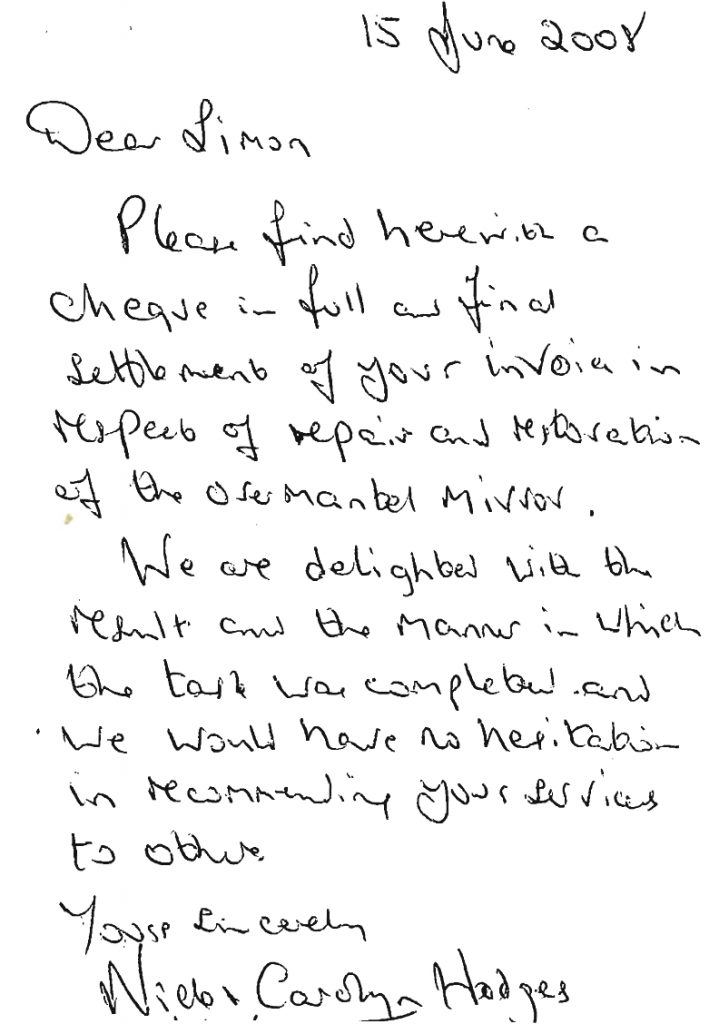 15 June 2008
Dear Simon
Please find herewith a
cheque in full and final
settlement of your invoice in
respect of repair and restoration
of the overmantel mirror.
We are delighted with the
result and the manner in which
the task was completed and
we would have no hesitation
in recommending your services
to others
Yours sincerely
Carolyn Hodges